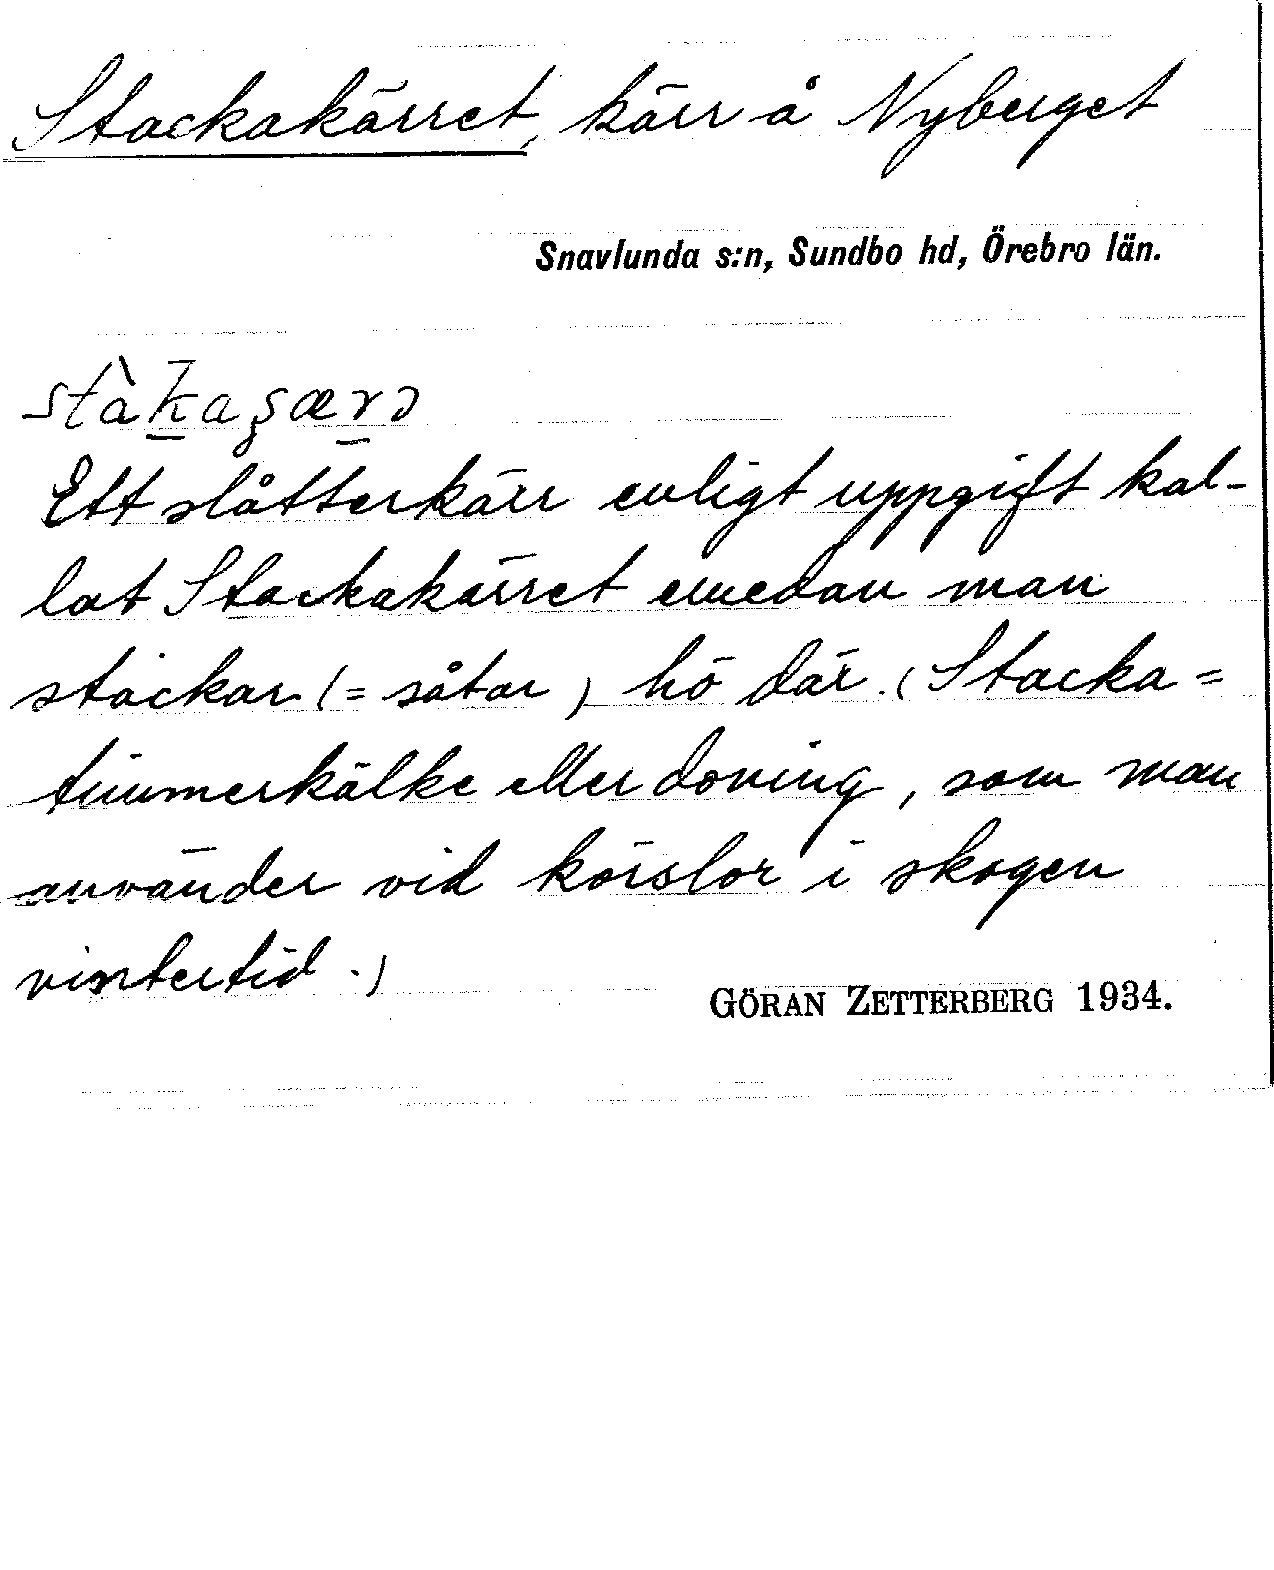 Stackakärret, kärr å Nyberget
Snavlunda s:n, Sundbo hd, Örebro län.
stàk̲aʂær̲ə
Ett slåtterkärr enligt uppgift kal-
lat Stackakärret emedan man
stackar (= såtar) hö där. (Stacka =
timmerkälke eller doning, som man
använder vid körslor i skogen
vintertid.)
GÖRAN ZETTERBERG 1934.